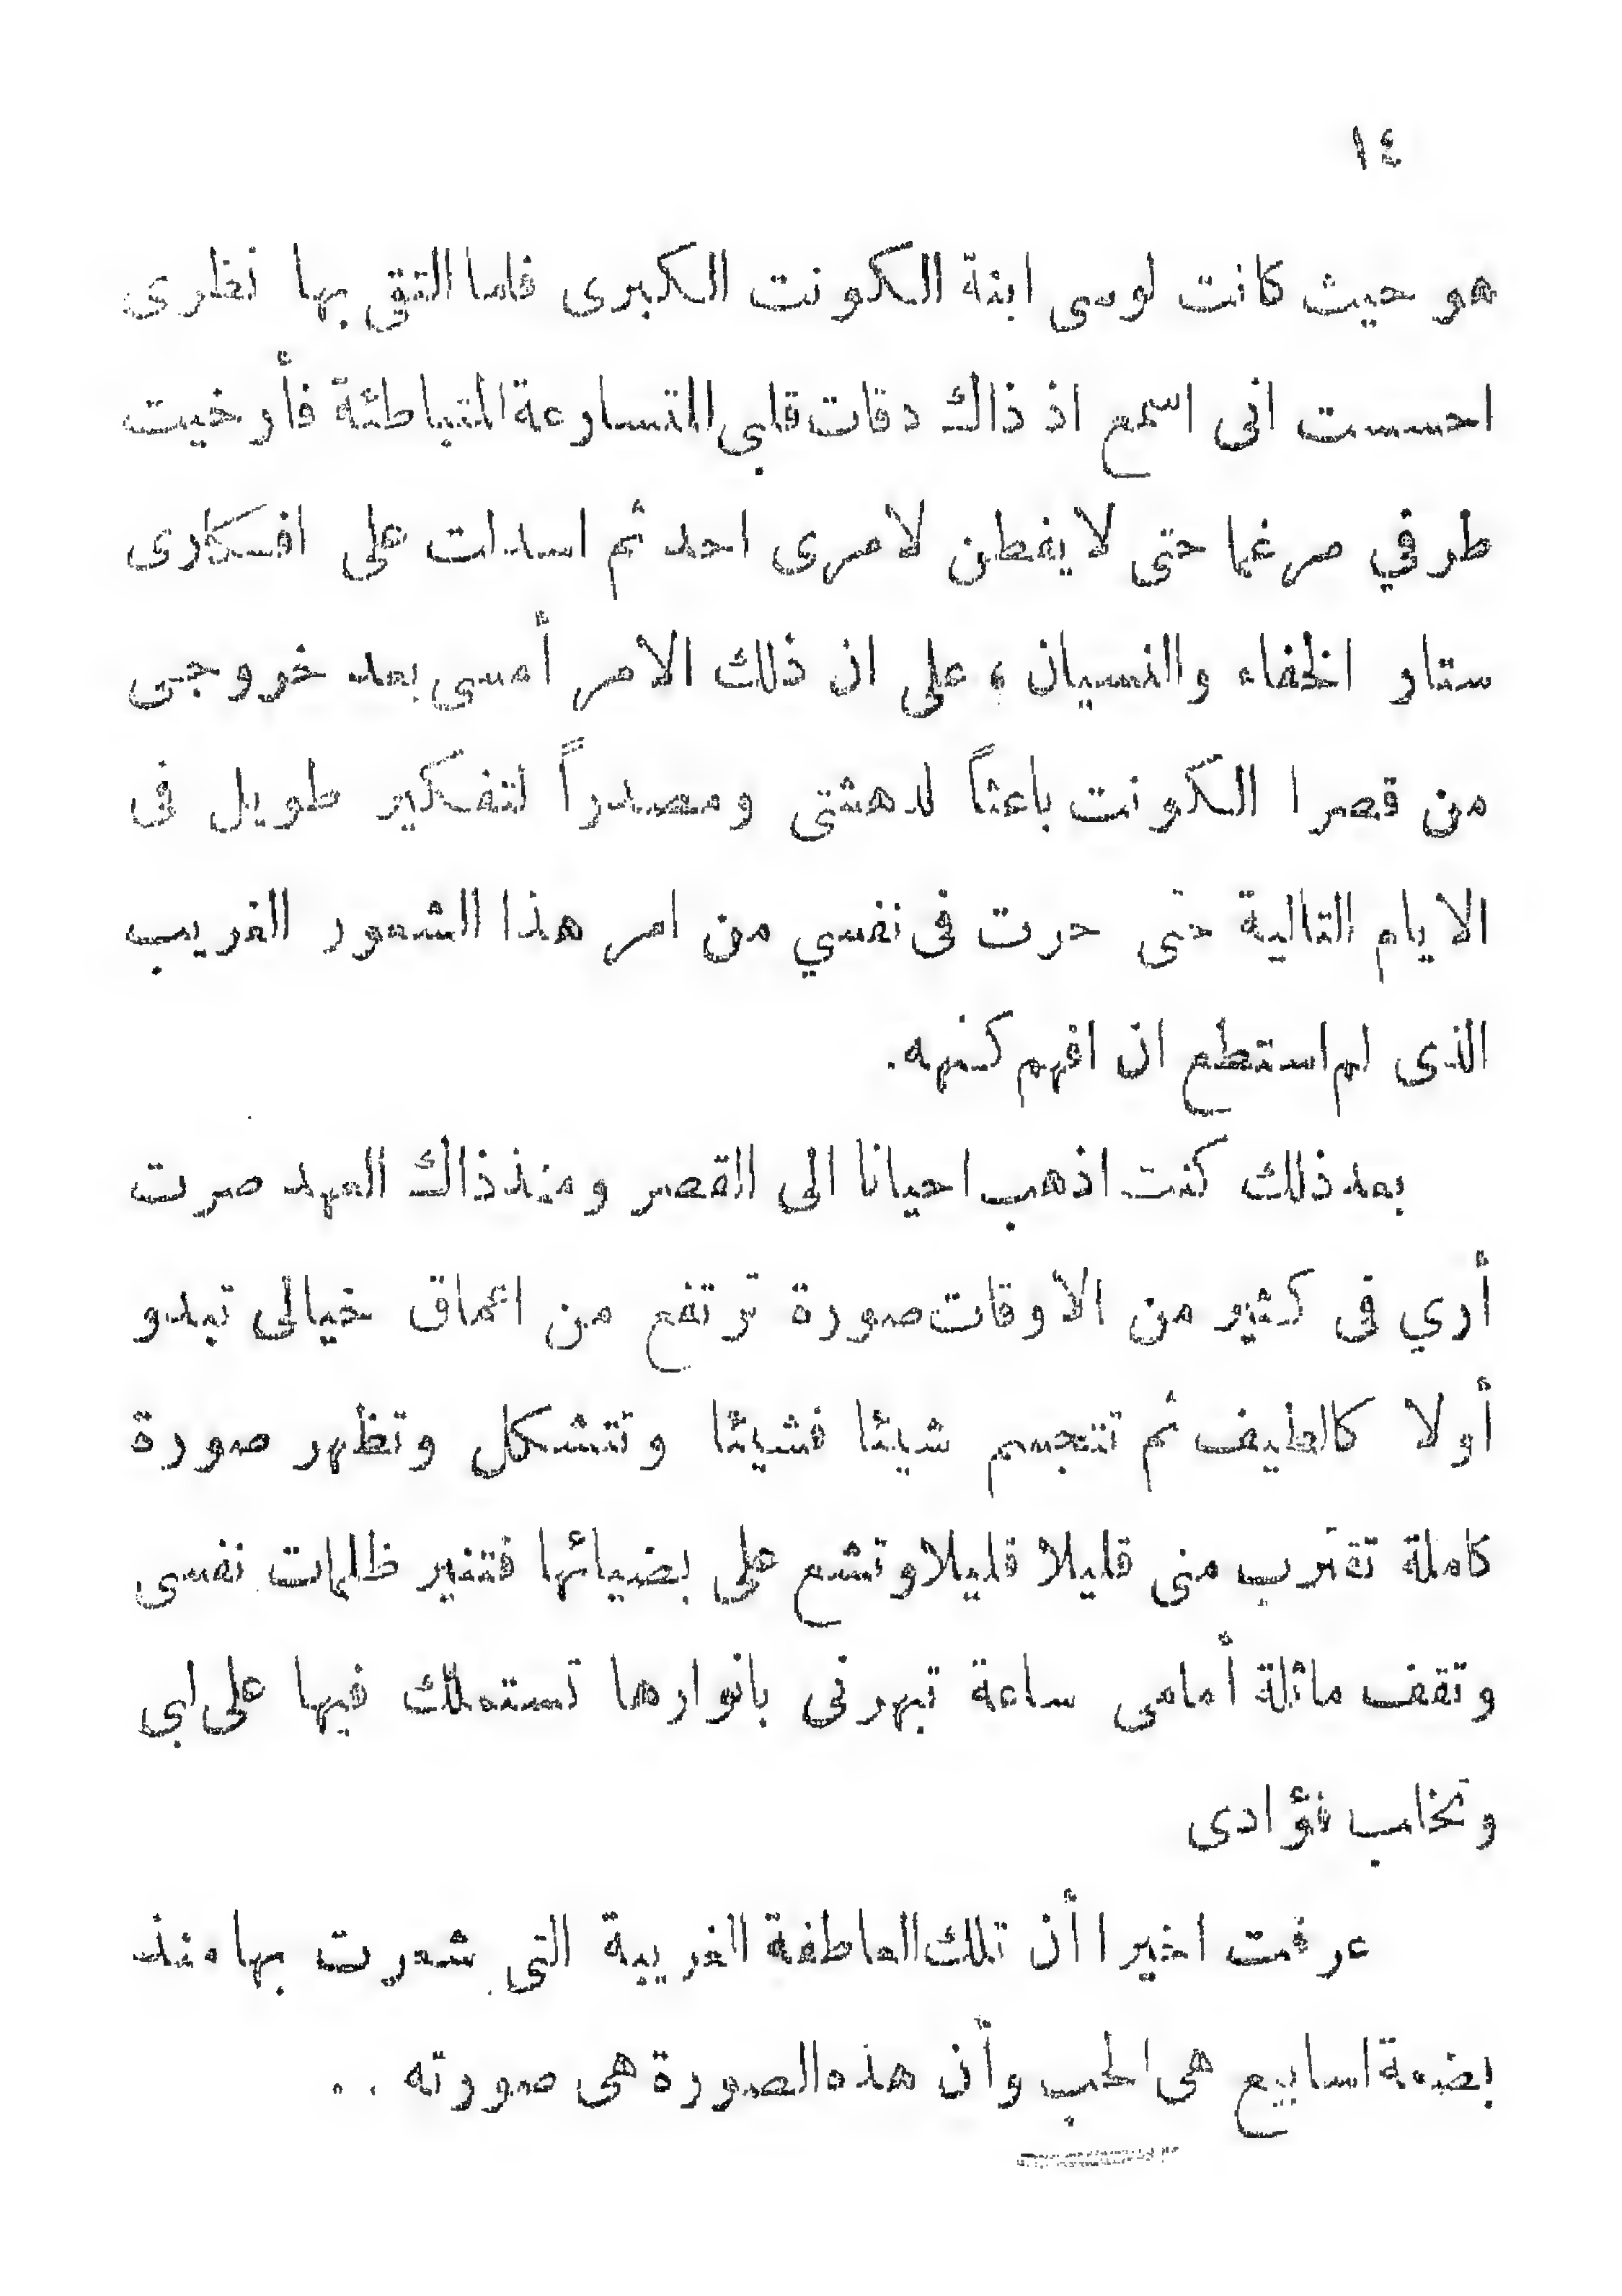 ١٤
هو حيث كانت لوسى ابنة الكونت الكبرى فلما التقى بها نظرى
احسست انى اسمع اذ ذاك دقات قلبى المتسارعة المتباطئة فأرخيت
طرفي مرغما حتى لا يفطن لامرى احد ثم اسدلت على افكارى
ستار الخفاء والنسيان ، على ان ذلك الامر أمسى بعد خروجى
من قصرا الكونت باعثاً لدهشتى ومصدراً لتفكير طويل فى
الايام التالية حتى حرت فى نفسي من امر هذا الشعور الغريب
الذى لم استطع ان افهم كنهه.
بعد ذلك كنت اذهب احيانا الى القصر ومنذ ذاك العهد صرت
أري فى كثير من الاوقات صورة ترتفع من اعماق خيالى تبدو
أولا كالطيف ثم تتجسم شيئا فشيئا وتتشكل وتظهر صورة
كاملة تقترب منى قليلا قليلا وتشع على بضيائها فتنير ظلمات نفسى
وتقف ماثلة أمامى ساعة تبهرنى بانوارها تستملك فيها على لبي
وتخلب فؤادى
عرفت اخيرا أن تلك العاطفة الغريبة التى شعرت بها منذ
بضعة اسابيع هى الحب وأن هذه الصورة هى صورته . .